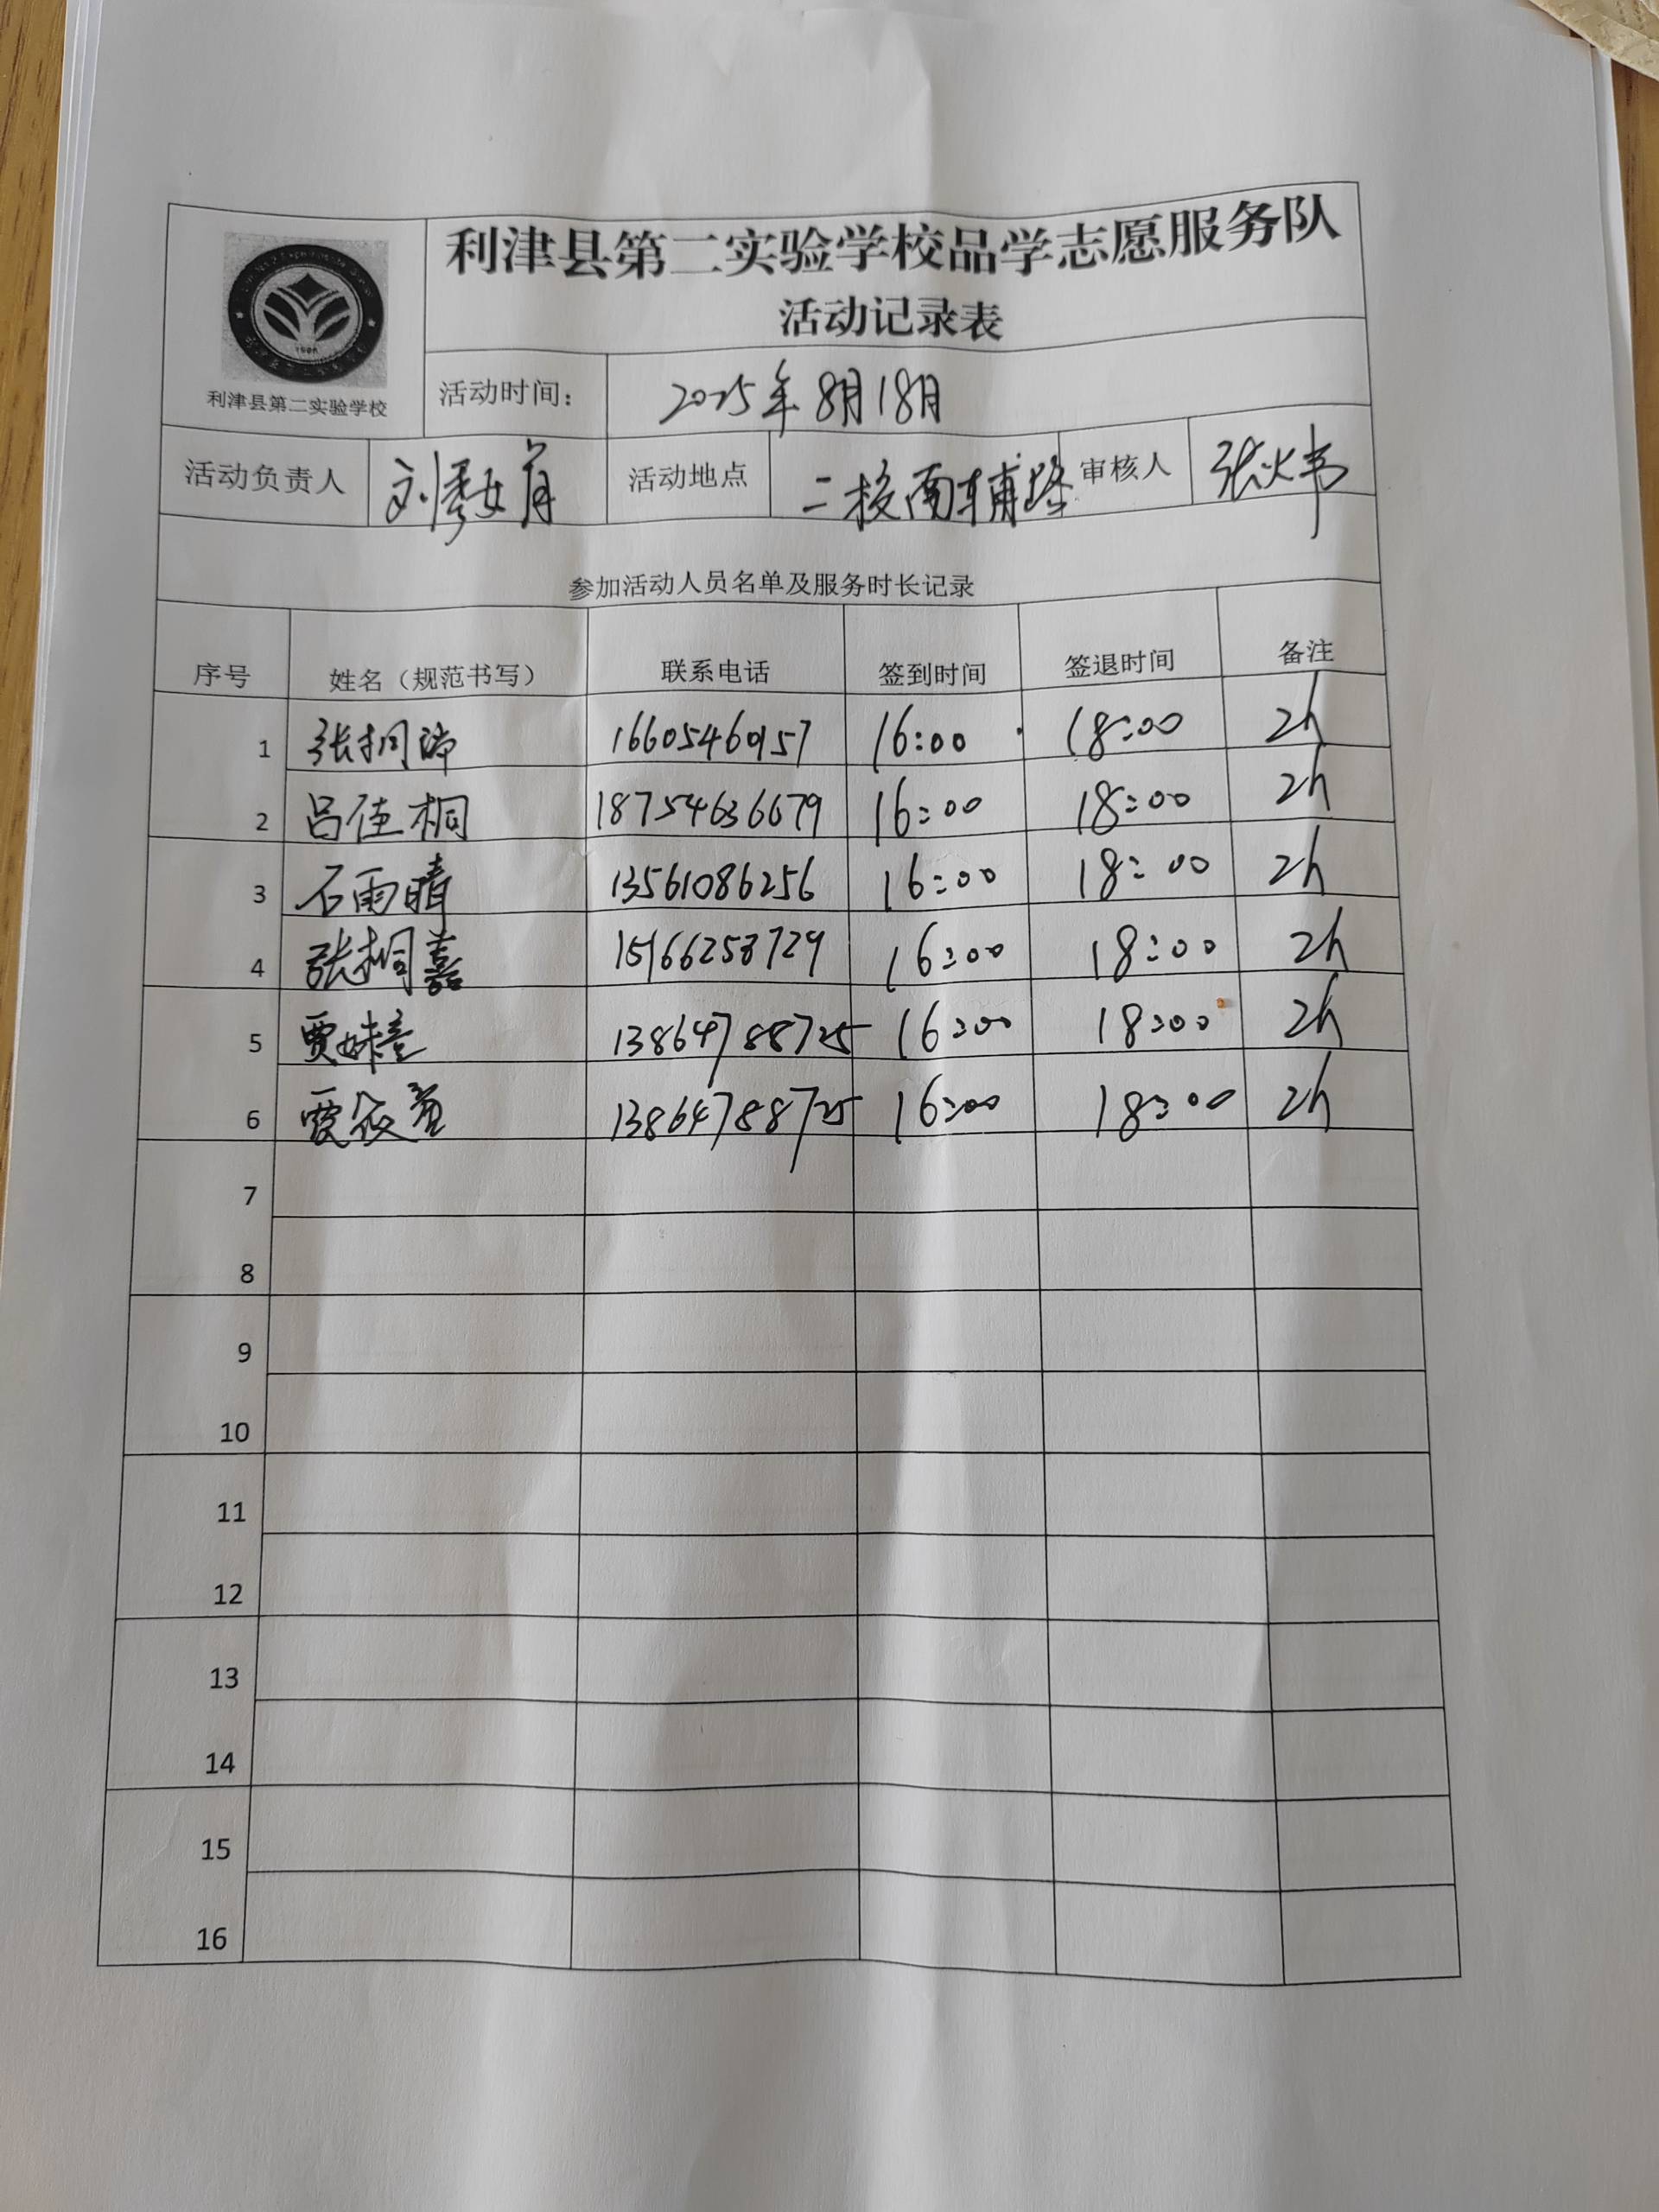 利津县第二实验学校品学志愿服务队
活动记录表
1996
利津县第二实验学校
活动时间： 2025年8月18月
活动负责人 刘秀 活动地点 二校南辅路 审核人 张
参加活动人员名单及服务时长记录
序号 姓名（规范书写） 联系电话 签到时间 签退时间 备注
1 张桐 16605460157 16:00 18:00 2h
2 吕佳桐 18754636679 16:00 18:00 2h
3 石雨晴 13561086256 16:00 18:00 2h
4 张桐嘉 15166258729 16:00 18:00 2h
5 贾 13864788725 16:00 18:00 2h
6 贾 13864788725 16:00 18:00 2h
7
8
9
10
11
12
13
14
15
16